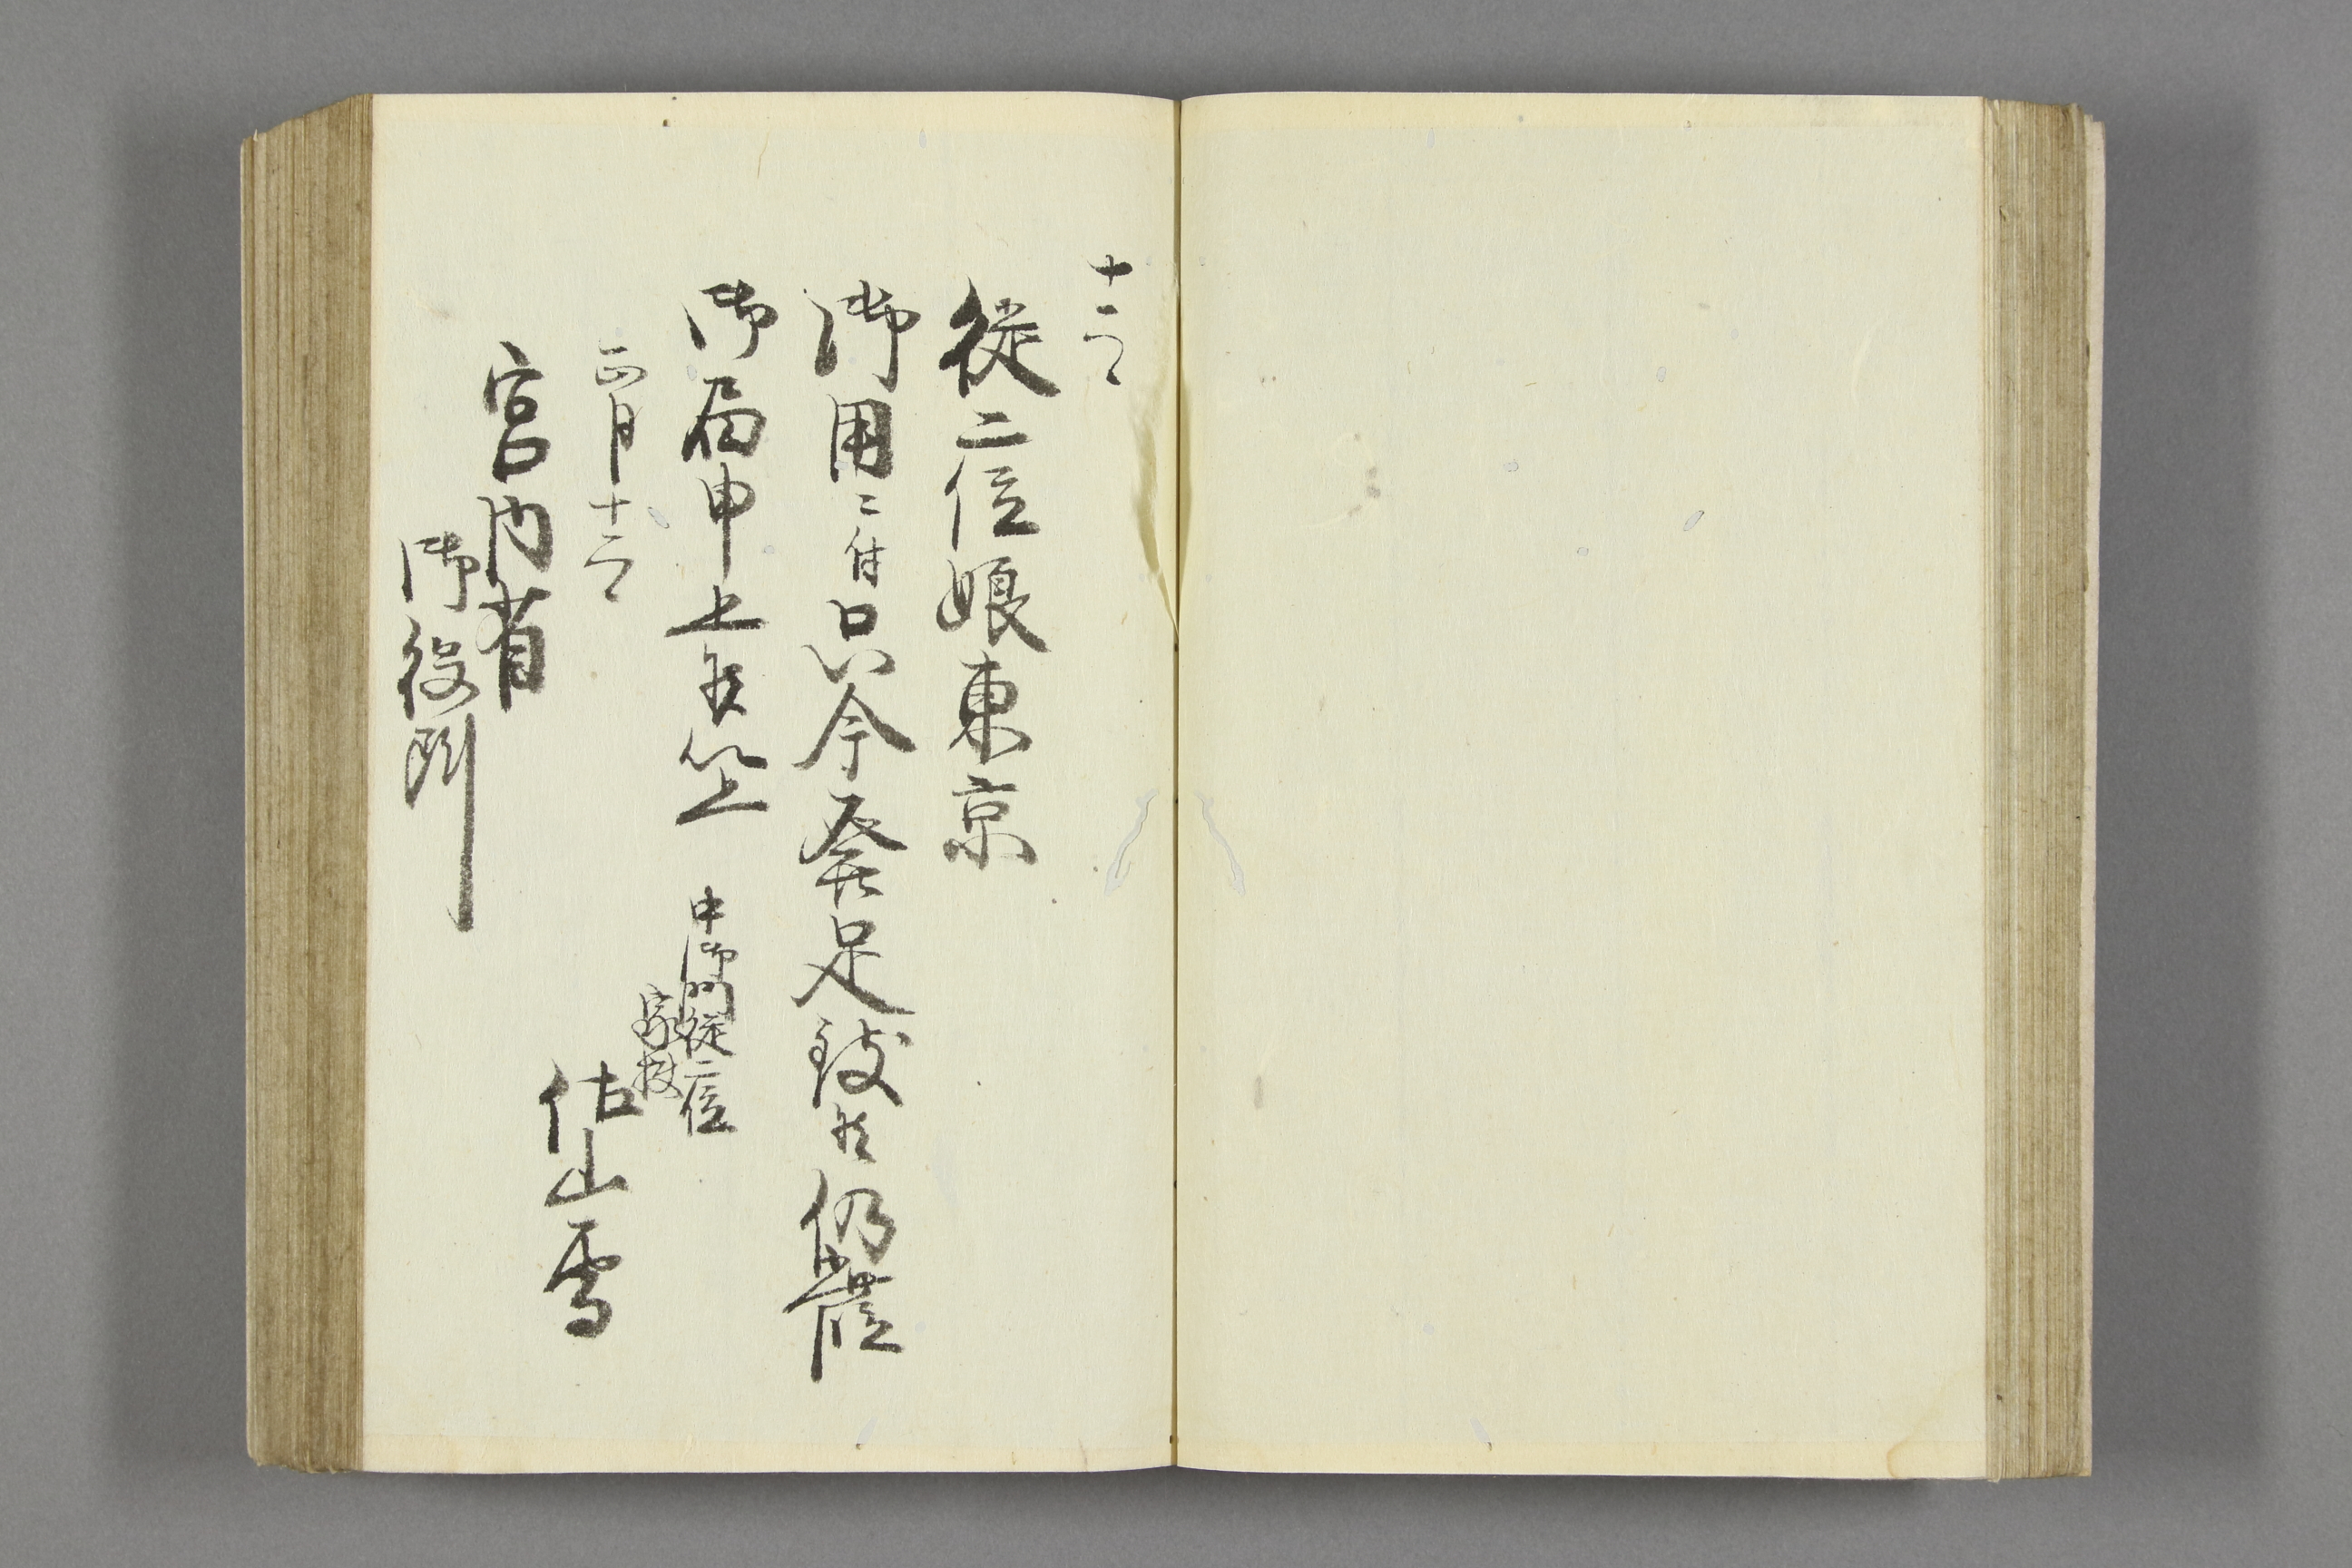 十二日
従二位娘東京
御用ニ付只今発足致候仍
御届申上候以上
中御門従二位
家扶
正月十二日
佐山雪
宮内省
御役所